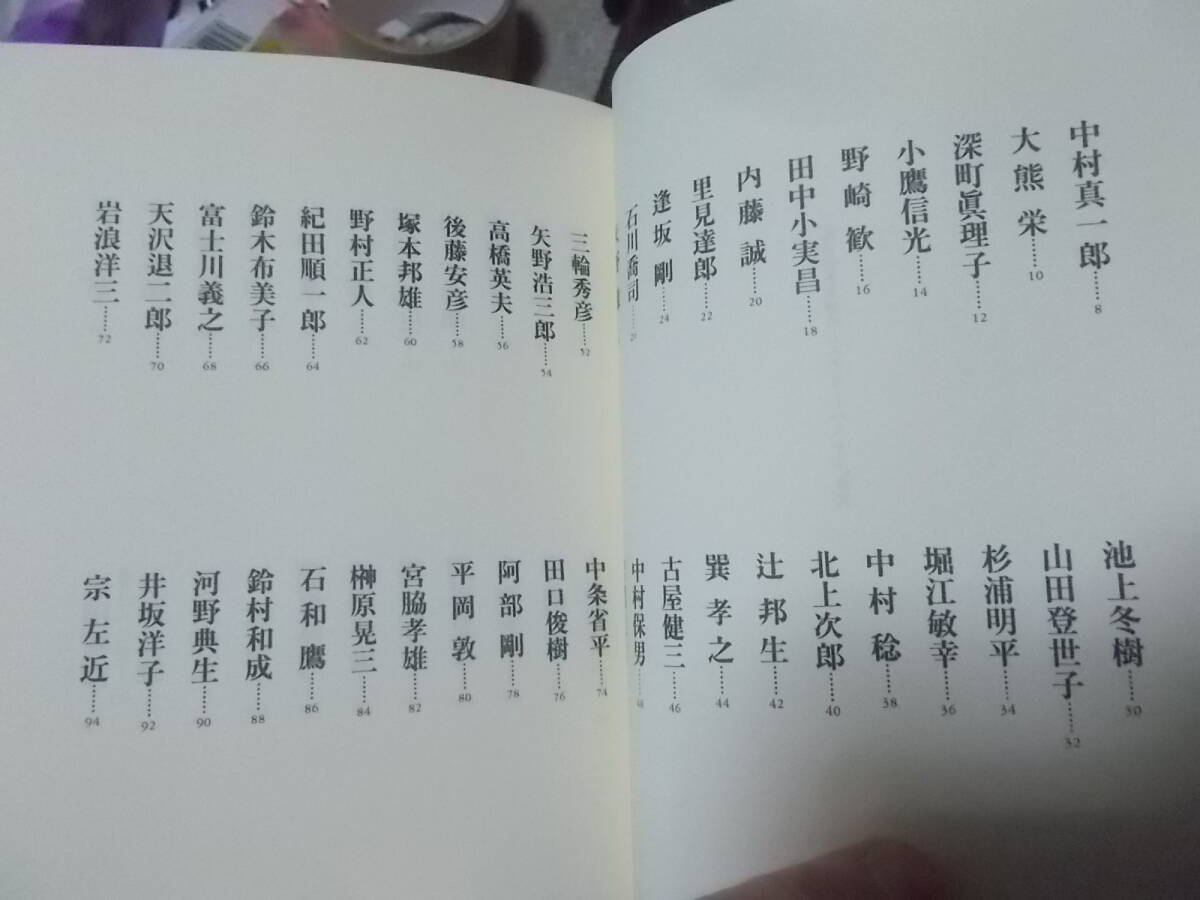 中村真一郎……8
大熊 栄……10
深町眞理子……12
小鷹信光……14
野崎 歓……16
田中小実昌……18
内藤 誠……20
里見達郎……22
逢坂 剛……24
石川喬司……26
池上冬樹……30
山田登世子……32
杉浦明平……34
堀江敏幸……36
中村 稔……38
北上次郎……40
辻 邦生……42
巽 孝之……44
古屋健三……46
中村保男……48
三輪秀彦……52
矢野浩三郎……54
高橋英夫……56
後藤安彦……58
塚本邦雄……60
野村正人……62
紀田順一郎……64
鈴木布美子……66
富士川義之……68
天沢退二郎……70
岩浪洋三……72
中条省平……74
田口俊樹……76
阿部 剛……78
平岡 敦……80
宮脇孝雄……82
榊原晃三……84
石和 鷹……86
鈴村和成……88
河野典生……90
井坂洋子……92
宗 左近……94